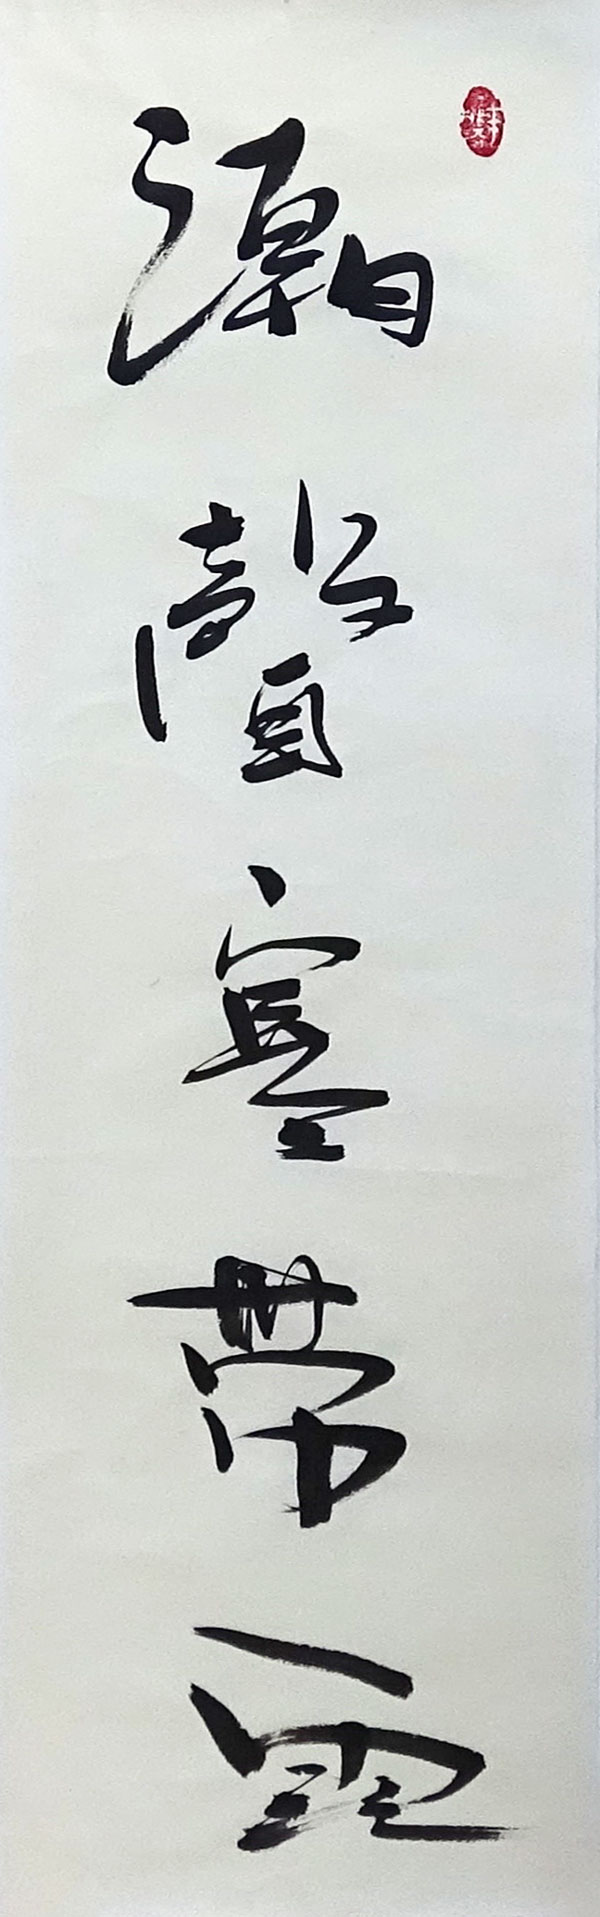 潮聲寒帶雨